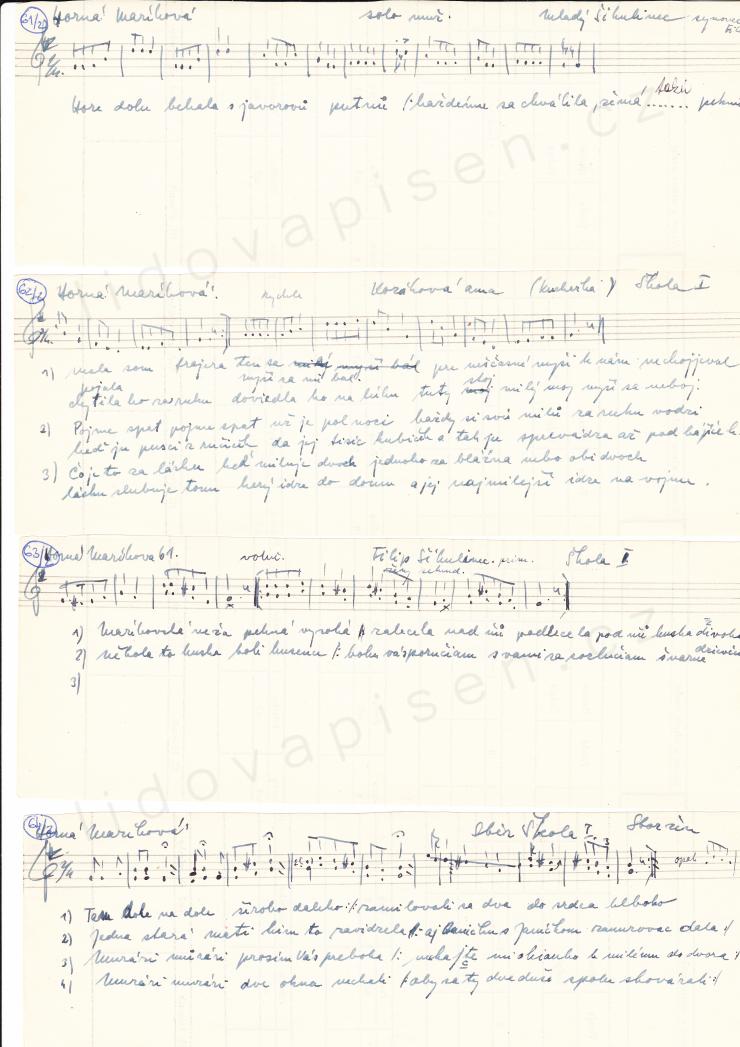 61/2 Horná Maríková solo muž. Mladý Šikulinec
Hore dolu behala s javorovú putnú /: každému sa chválila, že má ....... peknú
takú
62/2 Horná Maríková. rychle Kozáková ama (kucherka) Škola I
1) mala som frajera ten sa myší bál pre nešťasné myši k nám nechojjeval
pojala myší sa mi bál. stoj
chytila ho za ruku doviedla ho na lúku tuty milý moj myší sa neboj
2) Pojme spat pojme spat už je pol noci každy si svú milú za ruku vodzi
keď ju pusci z ručičk da jej tisic hubičiek a tak ju sprevádza až pod
3) Čo je to za lásku keď miluje dvoch jednoho za blázna nebo obidvoch
lásku slubuje tomu kerý idze do domu a jej najmilejší idze na vojnu.
63/2 Horná Maríkova 61. volně. Filip Šikulinec. prim. Škola I
ženy sekund.
1) Maríkovská veža pekná vysoká /: zalecela nad ňú podlecela pod ňú huska divoká
2) něbola to huska boli husence /: bohu vás poručiam s vami sa rozlučiam švarné dzievčence
3)
64/2 Horná Maríková Sbor Škola I. Sbor žen
opet
1) Tam dole na dole široko daleko :/: zamilovali sa dva do srdca hlboko
2) Jedna stará mati kim to zavidzela /: aj Aničku s Janíčkom zamurovac dala :/
3) Murári murári prosim Vás preboha /: nechajte mi okienko k milému do dvora :/
4) Murári murári dve okna nechali /: aby sa ty dve duše spolu shovárali :/
lidovapisen.cz
lidovapisen.cz